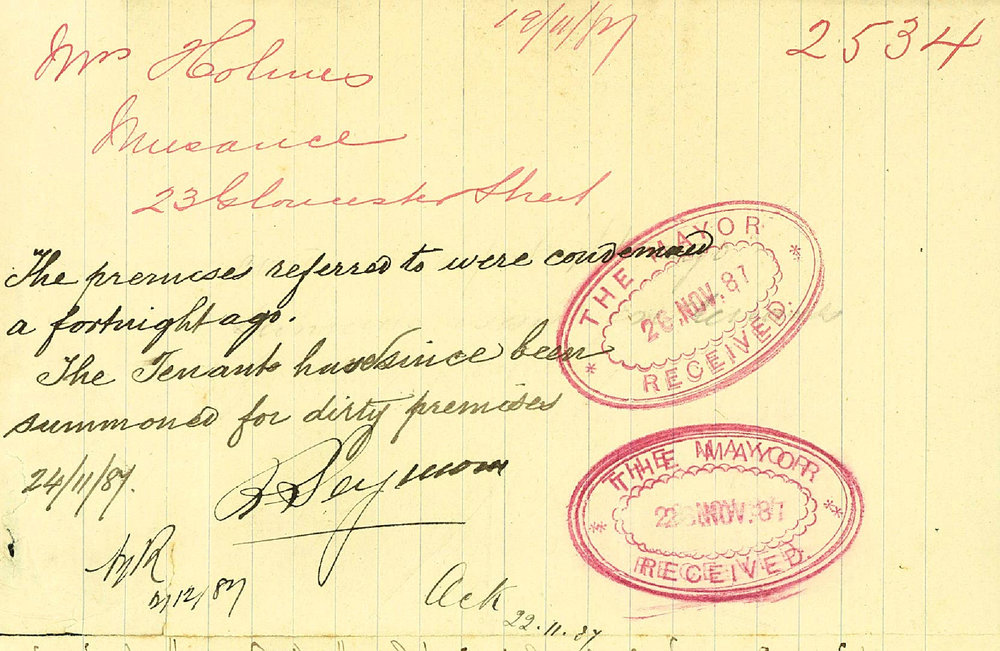 19/11/87
2534
Mrs Holmes
Nuisance
23 Gloucester Street
The premises referred to were condemned
a fortnight ago.
The Tenants have since been
summoned for dirty premises
24/11/87.
Seymour
THE MAYOR
26.NOV.87
RECEIVED.
THE MAYOR
NOV.87
RECEIVED
12/87
Ack
22.11.87